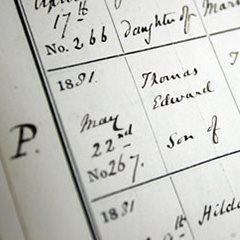 April
17th daughter of Mari
No. 266
1891. Thomas
Edward
May
22nd Son of
P.
No 267.
1891 Hild